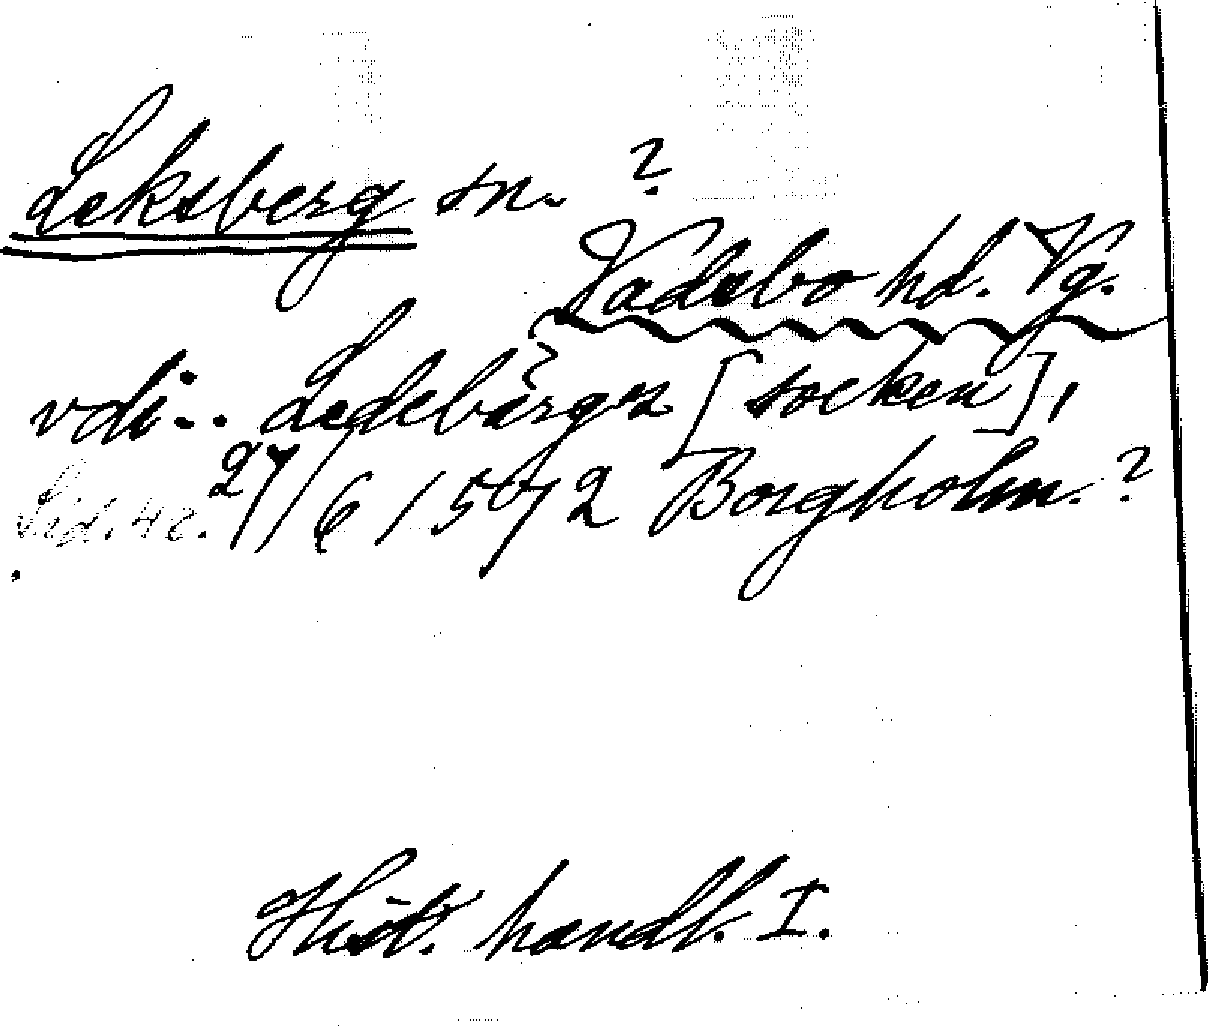 Leksberg sn. ?
Vadsbo hd. Vg.
vdi - . Ledebärgx [socken],
Sid. 42. 27/6 1572 Borgholm. ?
Hist. handl. I.